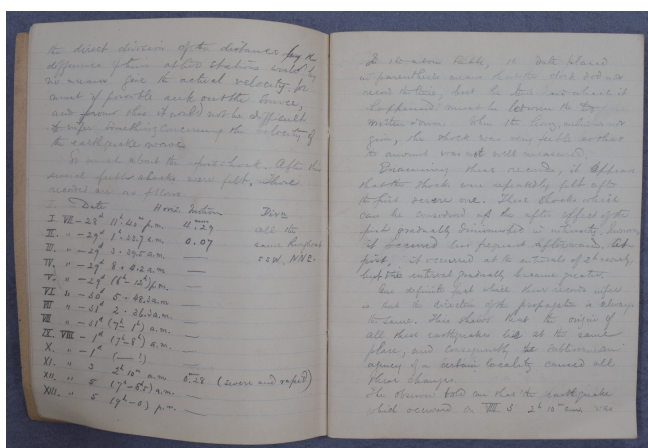 the direct division of the distance by the
difference of time at two stations would by
no means give the actual velocity. We
must if possible seek out the source,
and from this it would not be difficult
to infer something concerning the velocity of
the earthquake waves.
So much about the first shock. After this
several feeble shocks were felt. Those
records are as follows.
Date Horiz. Motion Direc
I. VII - 28d 11h. 40m p.m. 4.29 all the
II. " - 29d 1 . 22.7 a.m 0.07 same the first
III. " - 29d 3 . 39.5 a.m — SSW, NNE.
IV. " - 29d 8 . 4.2 a.m —
V. " - 29d p.m. —
VI. " - 30d 5 . 48.3 a.m. —
VII " - 31d 2 . 36.3 a.m. —
VIII " - 31d a.m. —
IX. VIII - 1d a.m. —
X. " - 1d —
XI. " 3 2h 10m a.m 0.28 (severe and rapid)
XII. " 5 a.m. —
XIII. " 5 p.m. —
In the above table, the date placed
in parenthesis means that the clock did not
record the time, but the time in which it
happened must be between the two
written down. When the horiz. motion is not
given, the shock was very feeble so that
the amount was not well measured.
Examining these records, it appears
that the shocks were repeatedly felt after
the first severe one. These shocks which
can be considered as the after effect of the
first gradually diminished in intensity, however
it occurred less frequent afterwards. At
first, it occurred at the intervals of
but the interval gradually became greater.
One definite fact which these records infer
is that the direction of the propagation is always
the same. This shows that the origin of
all these earthquakes lie at the same
place, and consequently the subterranean
agency of a certain locality caused all
these changes.
The observer told me that the earthquake
which occurred on VIII 3 2h 10m a.m. was